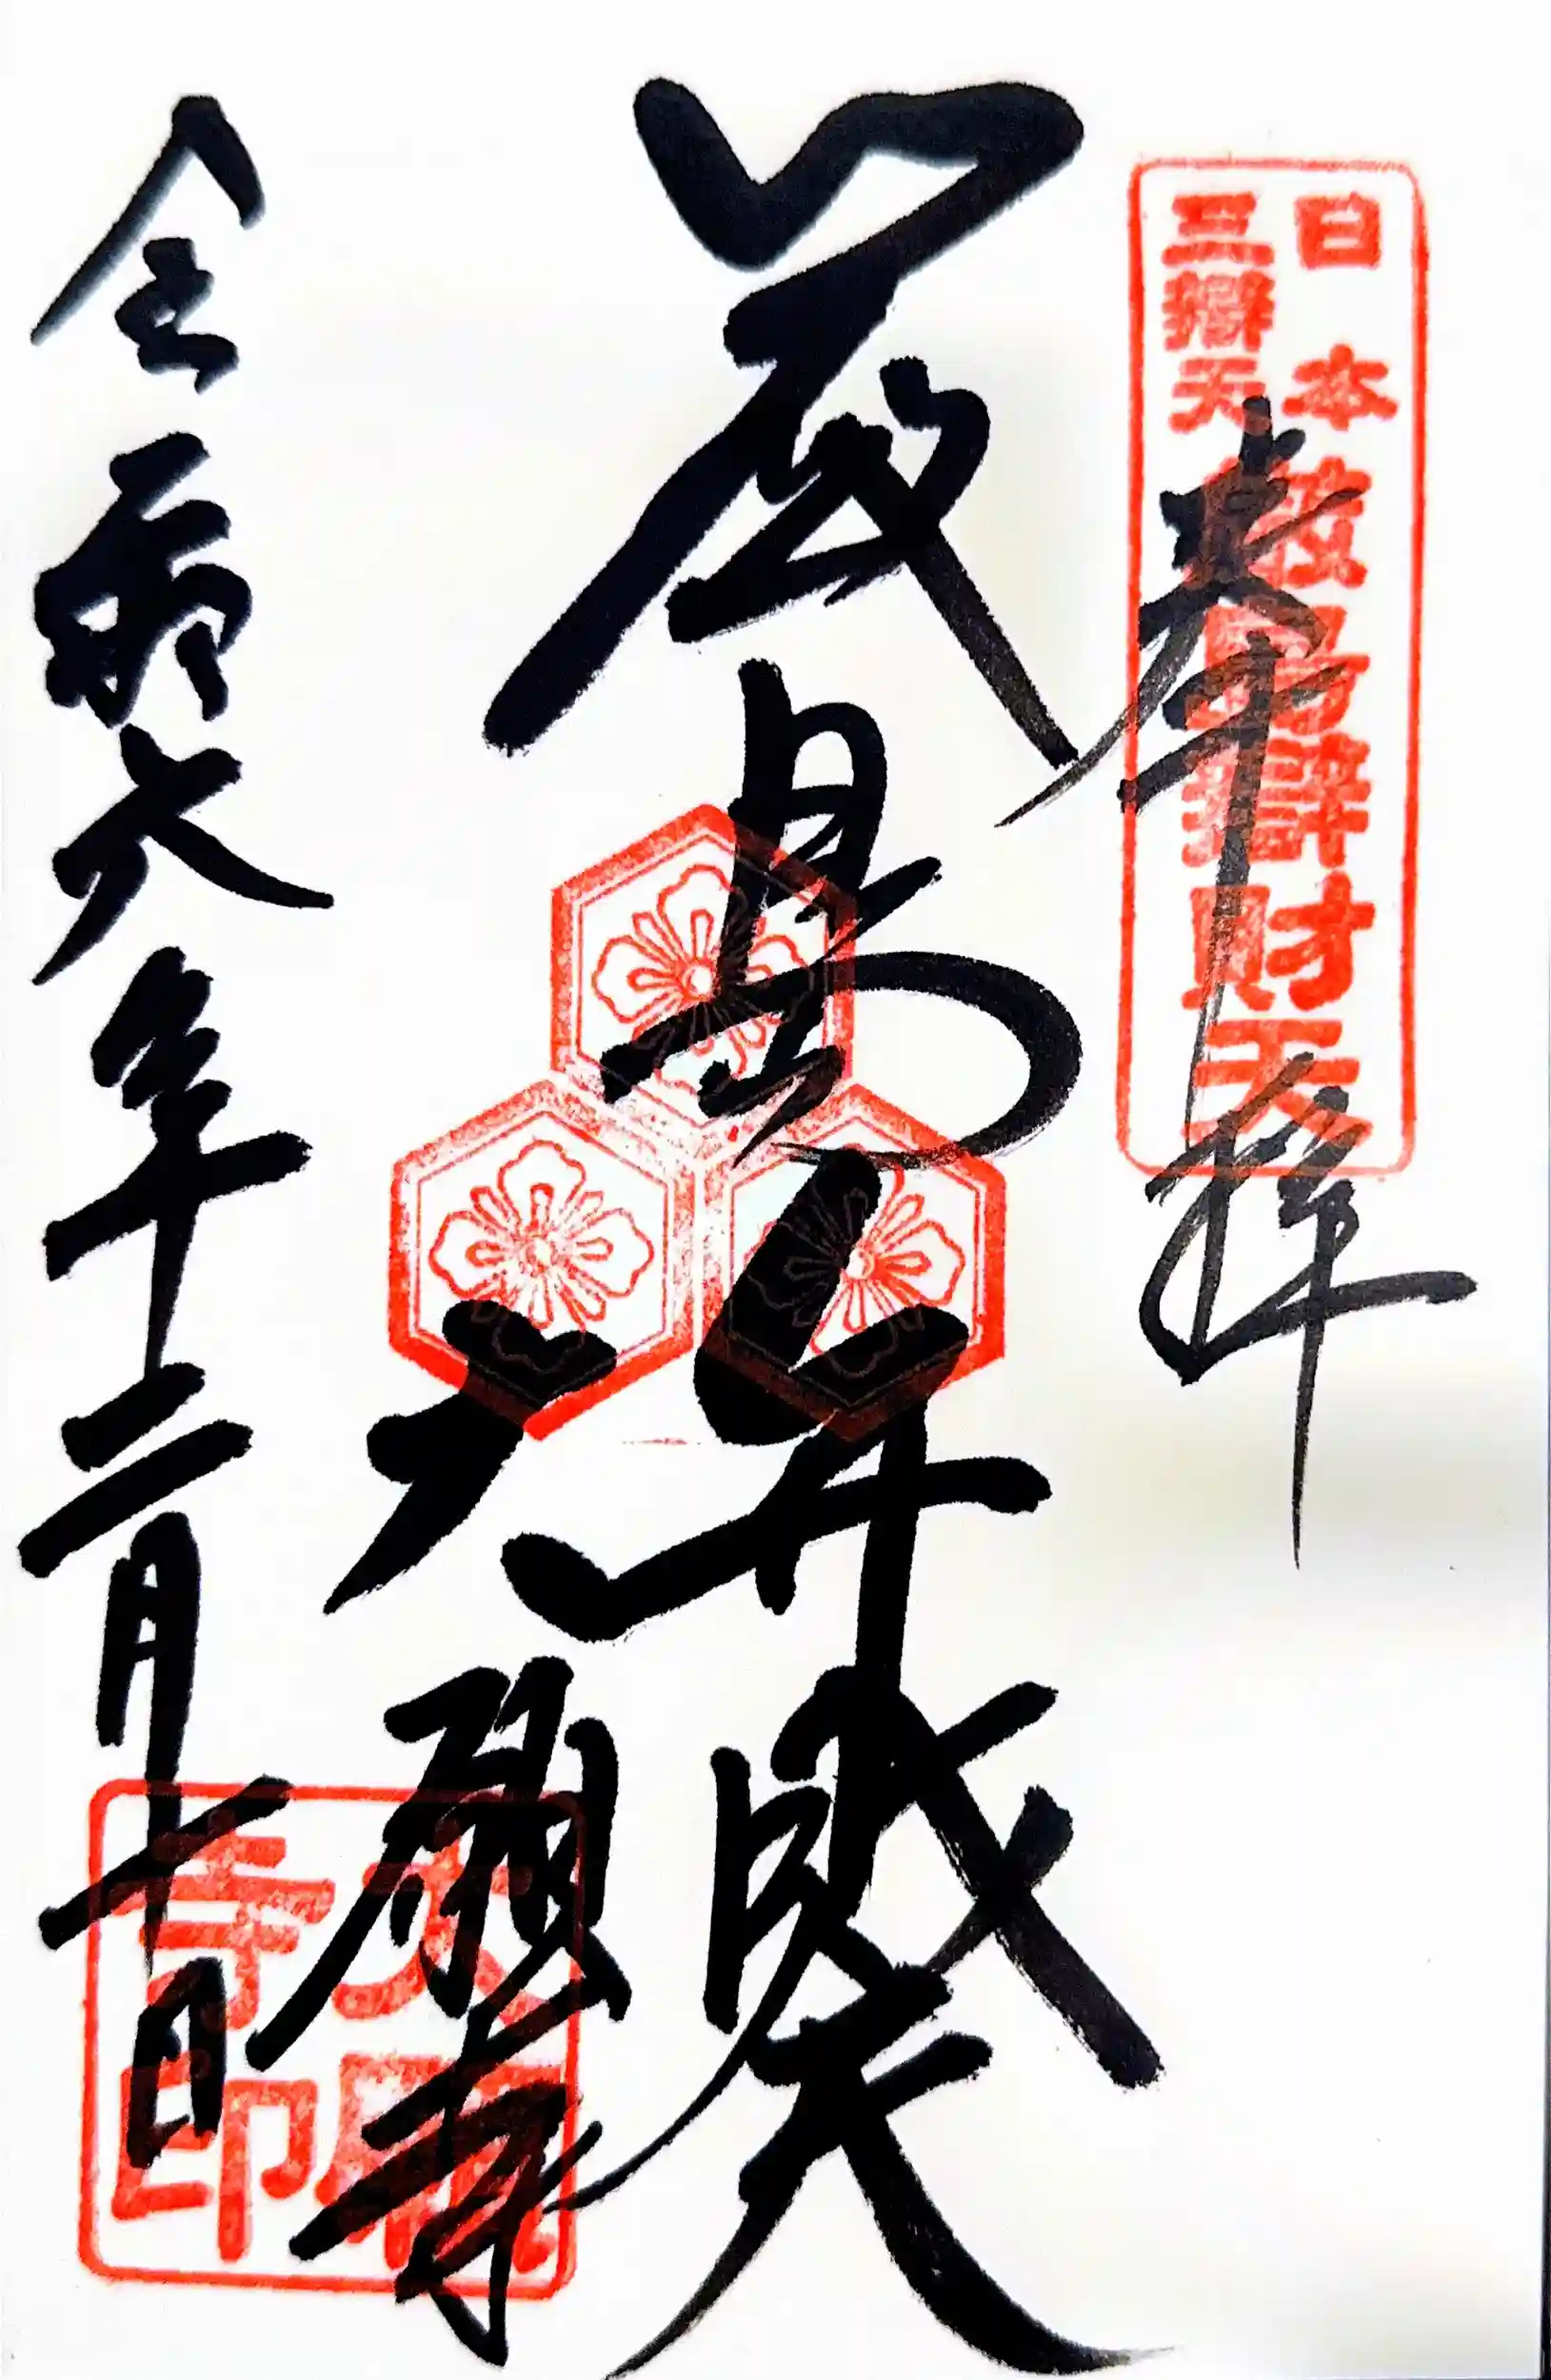 奉拝
日本
三辯天
厳島辯財天
厳島弁財天
大願寺
大願寺印
令和六年十二月十日